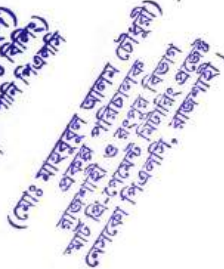 বিলিং)
পিএলসি
(মোঃ মাহবুবুল আলম চৌধুরী)
প্রকল্প পরিচালক
রাজশাহী ও রংপুর বিভাগ
স্মার্ট প্রি-পেমেন্ট মিটারিং প্রজেক্ট
নেসকো পিএলসি, রাজশাহী।